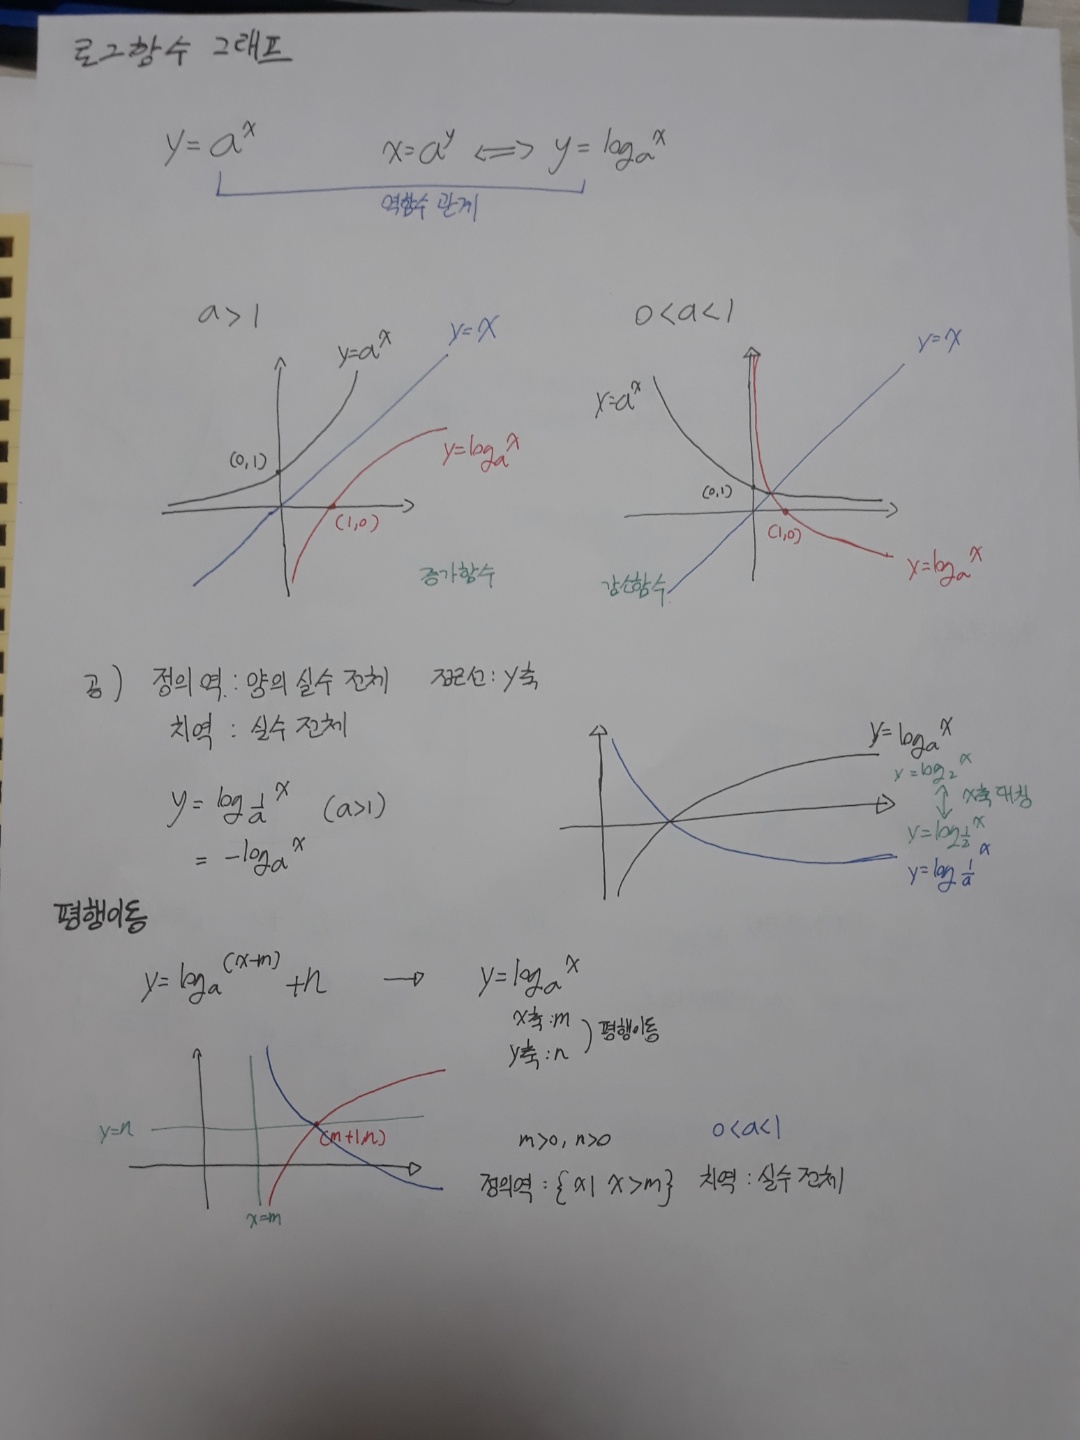 로그함수 그래프
y = a^x    x = a^y ⟺ y = log_a x
역함수 관계
a > 1
y = a^x
y = x
(0,1)
y = log_a x
(1,0)
증가함수
0 < a < 1
y = x
y = a^x
(0,1)
(1,0)
감소함수
y = log_a x
공) 정의역 : 양의 실수 전체    점근선 : y축
치역 : 실수 전체
y = log_{1/a} x (a>1)
= -log_a x
y = log_a x
y = log_2 x
x축 대칭
y = log_{1/2} x
y = log_{1/a} x
평행이동
y = log_a (x-m) + n → y = log_a x
x축 : m
y축 : n
) 평행이동
y=n
(m+1,n)
x=m
m>0, n>0    0<a<1
정의역 : {x | x>m}    치역 : 실수 전체